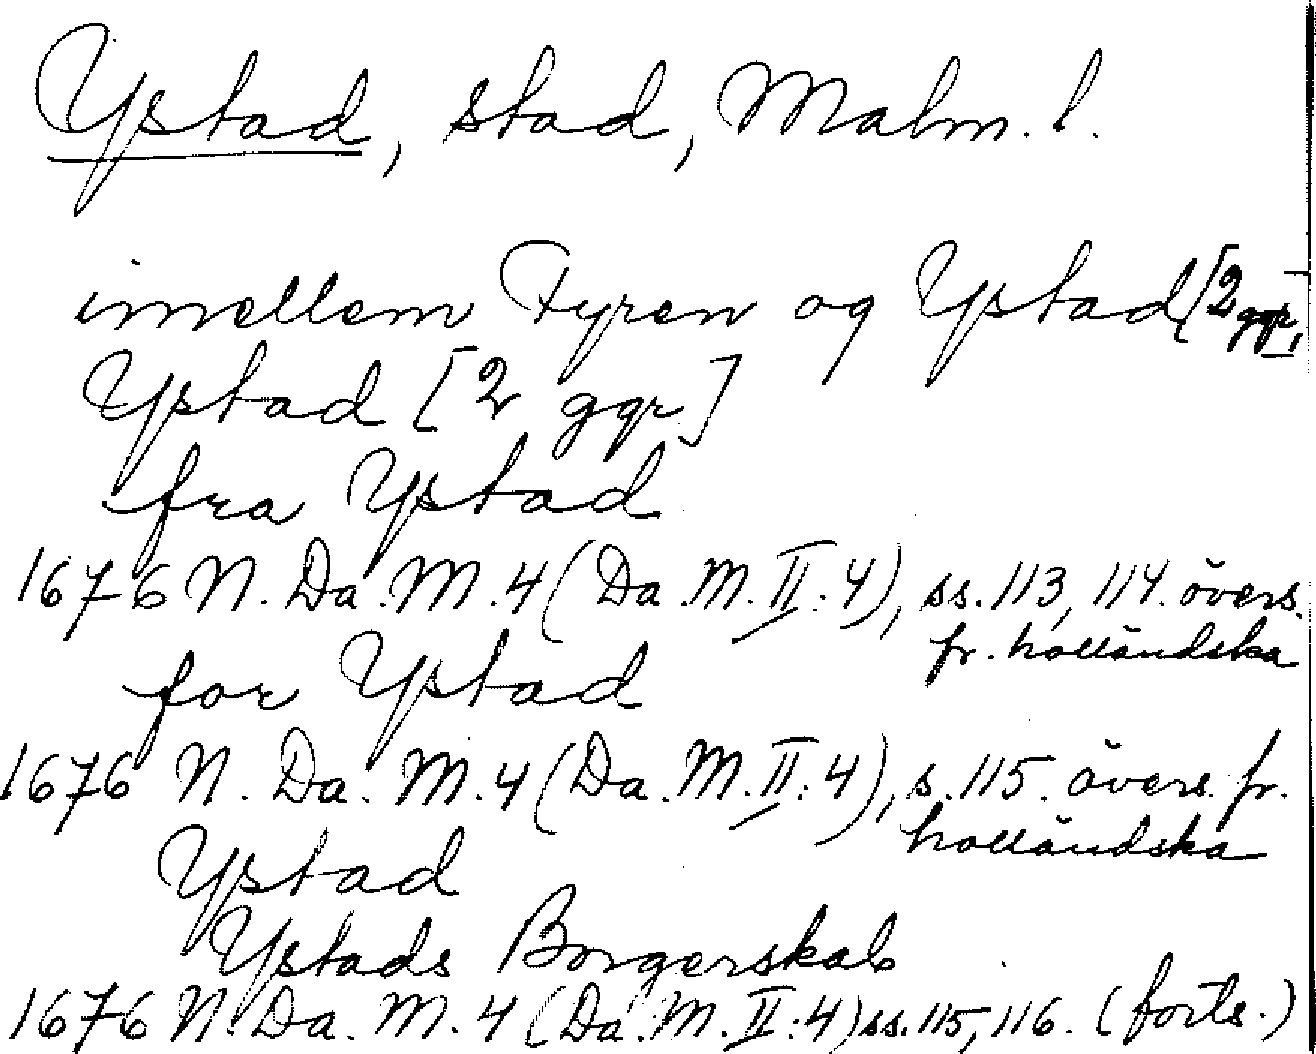 Ystad, stad, Malm. l.
imellem Fyren og Ystad [2 ggr,
Ystad [2 ggr.]
fra Ystad
1676 N. Da. M. 4 (Da. M. II: 4), ss. 113, 114. övers.
fr. holländska
for Ystad
1676 N. Da. M. 4 (Da. M. II: 4), s. 115. övers. fr.
holländska
Ystad
Ystads Borgerskab
1676 N. Da. M. 4 (Da. M. II: 4) ss. 115, 116. (forts.)